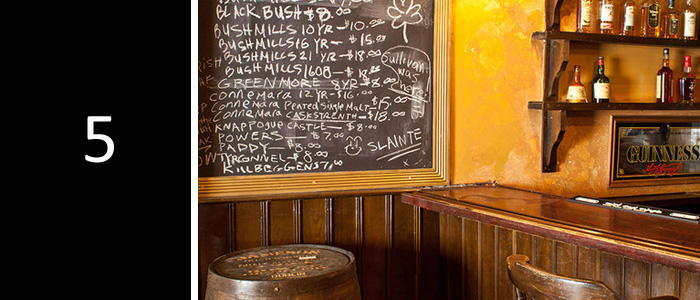 5
BLACK BUSH $8.00
BUSHMILLS 10 YR - $10.00
BUSHMILLS 16 YR - $15.00
BUSHMILLS 21 YR - $18.00
BUSHMILLS 1608
GREENMORE 8YR
Connemara 12 YR - $16.00
Connemara Peated Single Malt - $15.00
Connemara CASKSTRENTH - $18.00
KNAPPOGUE CASTLE - $8.00
POWERS - $7.00
PADDY - $8.00
TYRCONNEL - $8.00
KILLBEGGEN $7.00
Sullivan
was
SLAINTE
GUINNESS